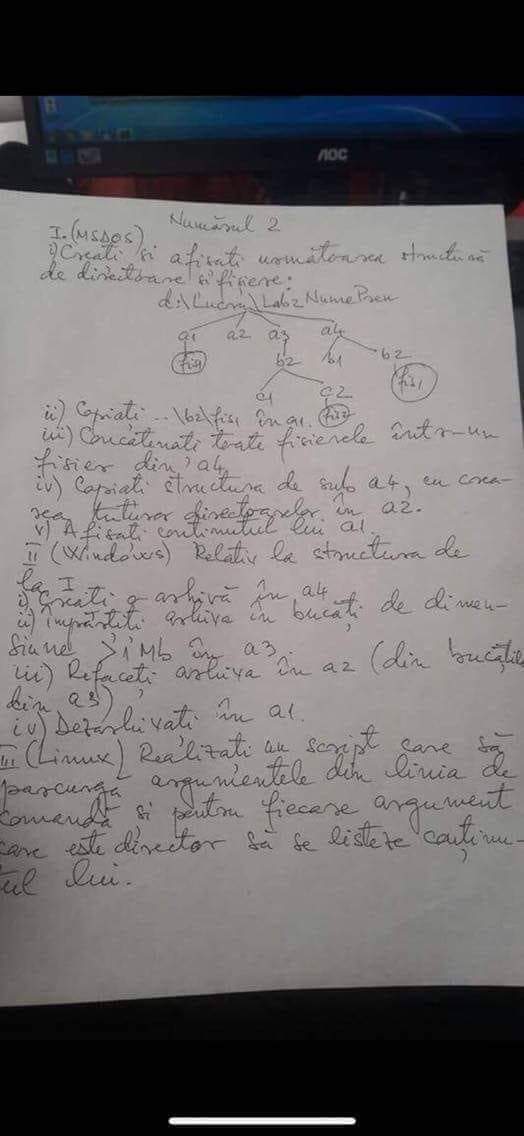 AOC
Numărul 2
I. (MSDOS)
i) Creati si afisati următoarea structură
de directoare si fisiere:
d:\Lucru\Lab2NumePren
a1 a2 a3 a4
b2 b1 b2
fis1
c1 c2
ii) Copiati ..\b2\fis1 în a1.
iii) Concatenati toate fisierele într-un
fisier din a4
iv) Copiati structura de sub a4, cu crea-
rea tuturor directoarelor în a2.
v) Afisati continutul lui a1.
II (Windows) Relativ la structura de
la I
i) Creati o arhivă în a4
ii) Împărtiti arhiva în bucăți de dimen-
siune >1Mb în a3.
iii) Refaceți arhiva în a2 (din bucățile
din a3)
iv) Dezarhivati în a1.
III (Linux) Realizati un script care să
parcurgă argumentele din linia de
comandă și pentru fiecare argument
care este director să se listeze conținu-
tul lui.